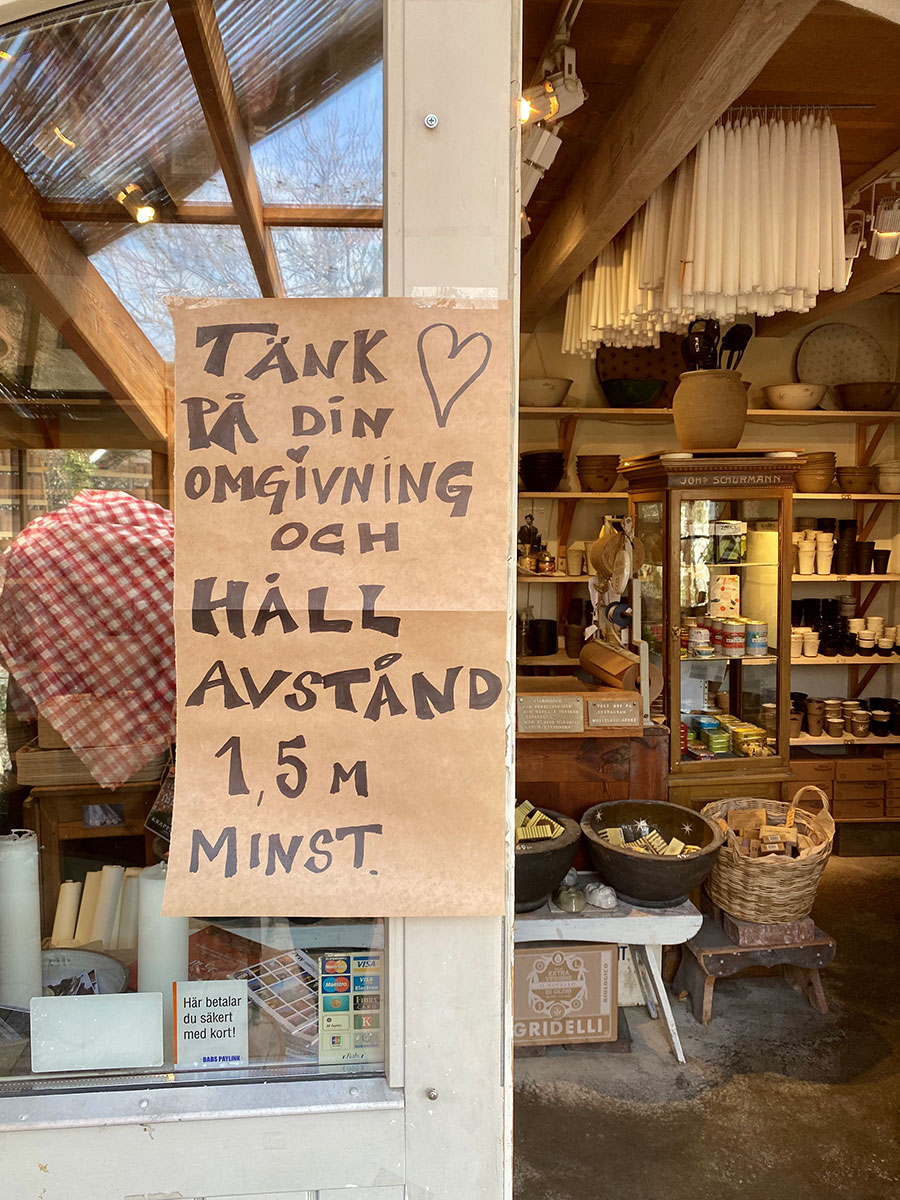 TÄNK
PÅ DIN
OMGIVNING
OCH
HÅLL
AVSTÅND
1,5 M
MINST.
JOHS SCHÜRMANN
Här betalar
du säkert
med kort!
BABS PAYLINK
MasterCard VISA
Maestro VISA
Electron
EXTRA
GRIDELLI